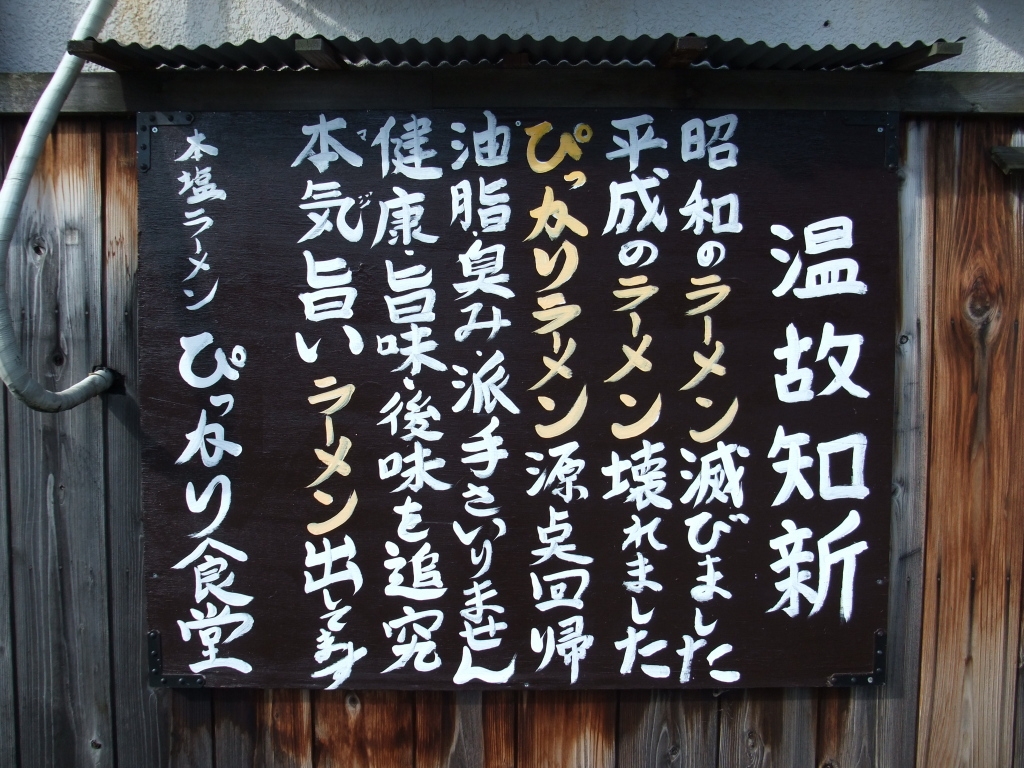 温故知新
昭和のラーメン滅びました
平成のラーメン壊れました
ぴっかりラーメン源点回帰
油脂・臭み・派手さいりません
健康・旨味・後味を追究
本気旨いラーメン出してます
マジ
本塩ラーメン ぴっかり食堂